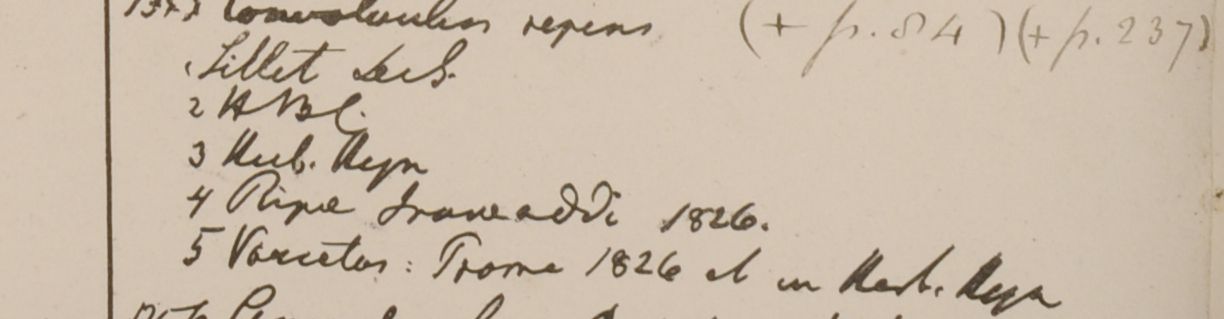 Convolvulus repens (+ p. 84) (+ p. 237)
1 Sillet
2 HBC.
3 Herb. Heyn
4 Ripæ Irawaddi 1826.
5 Varietas: Prome 1826 et in Herb. Heyn